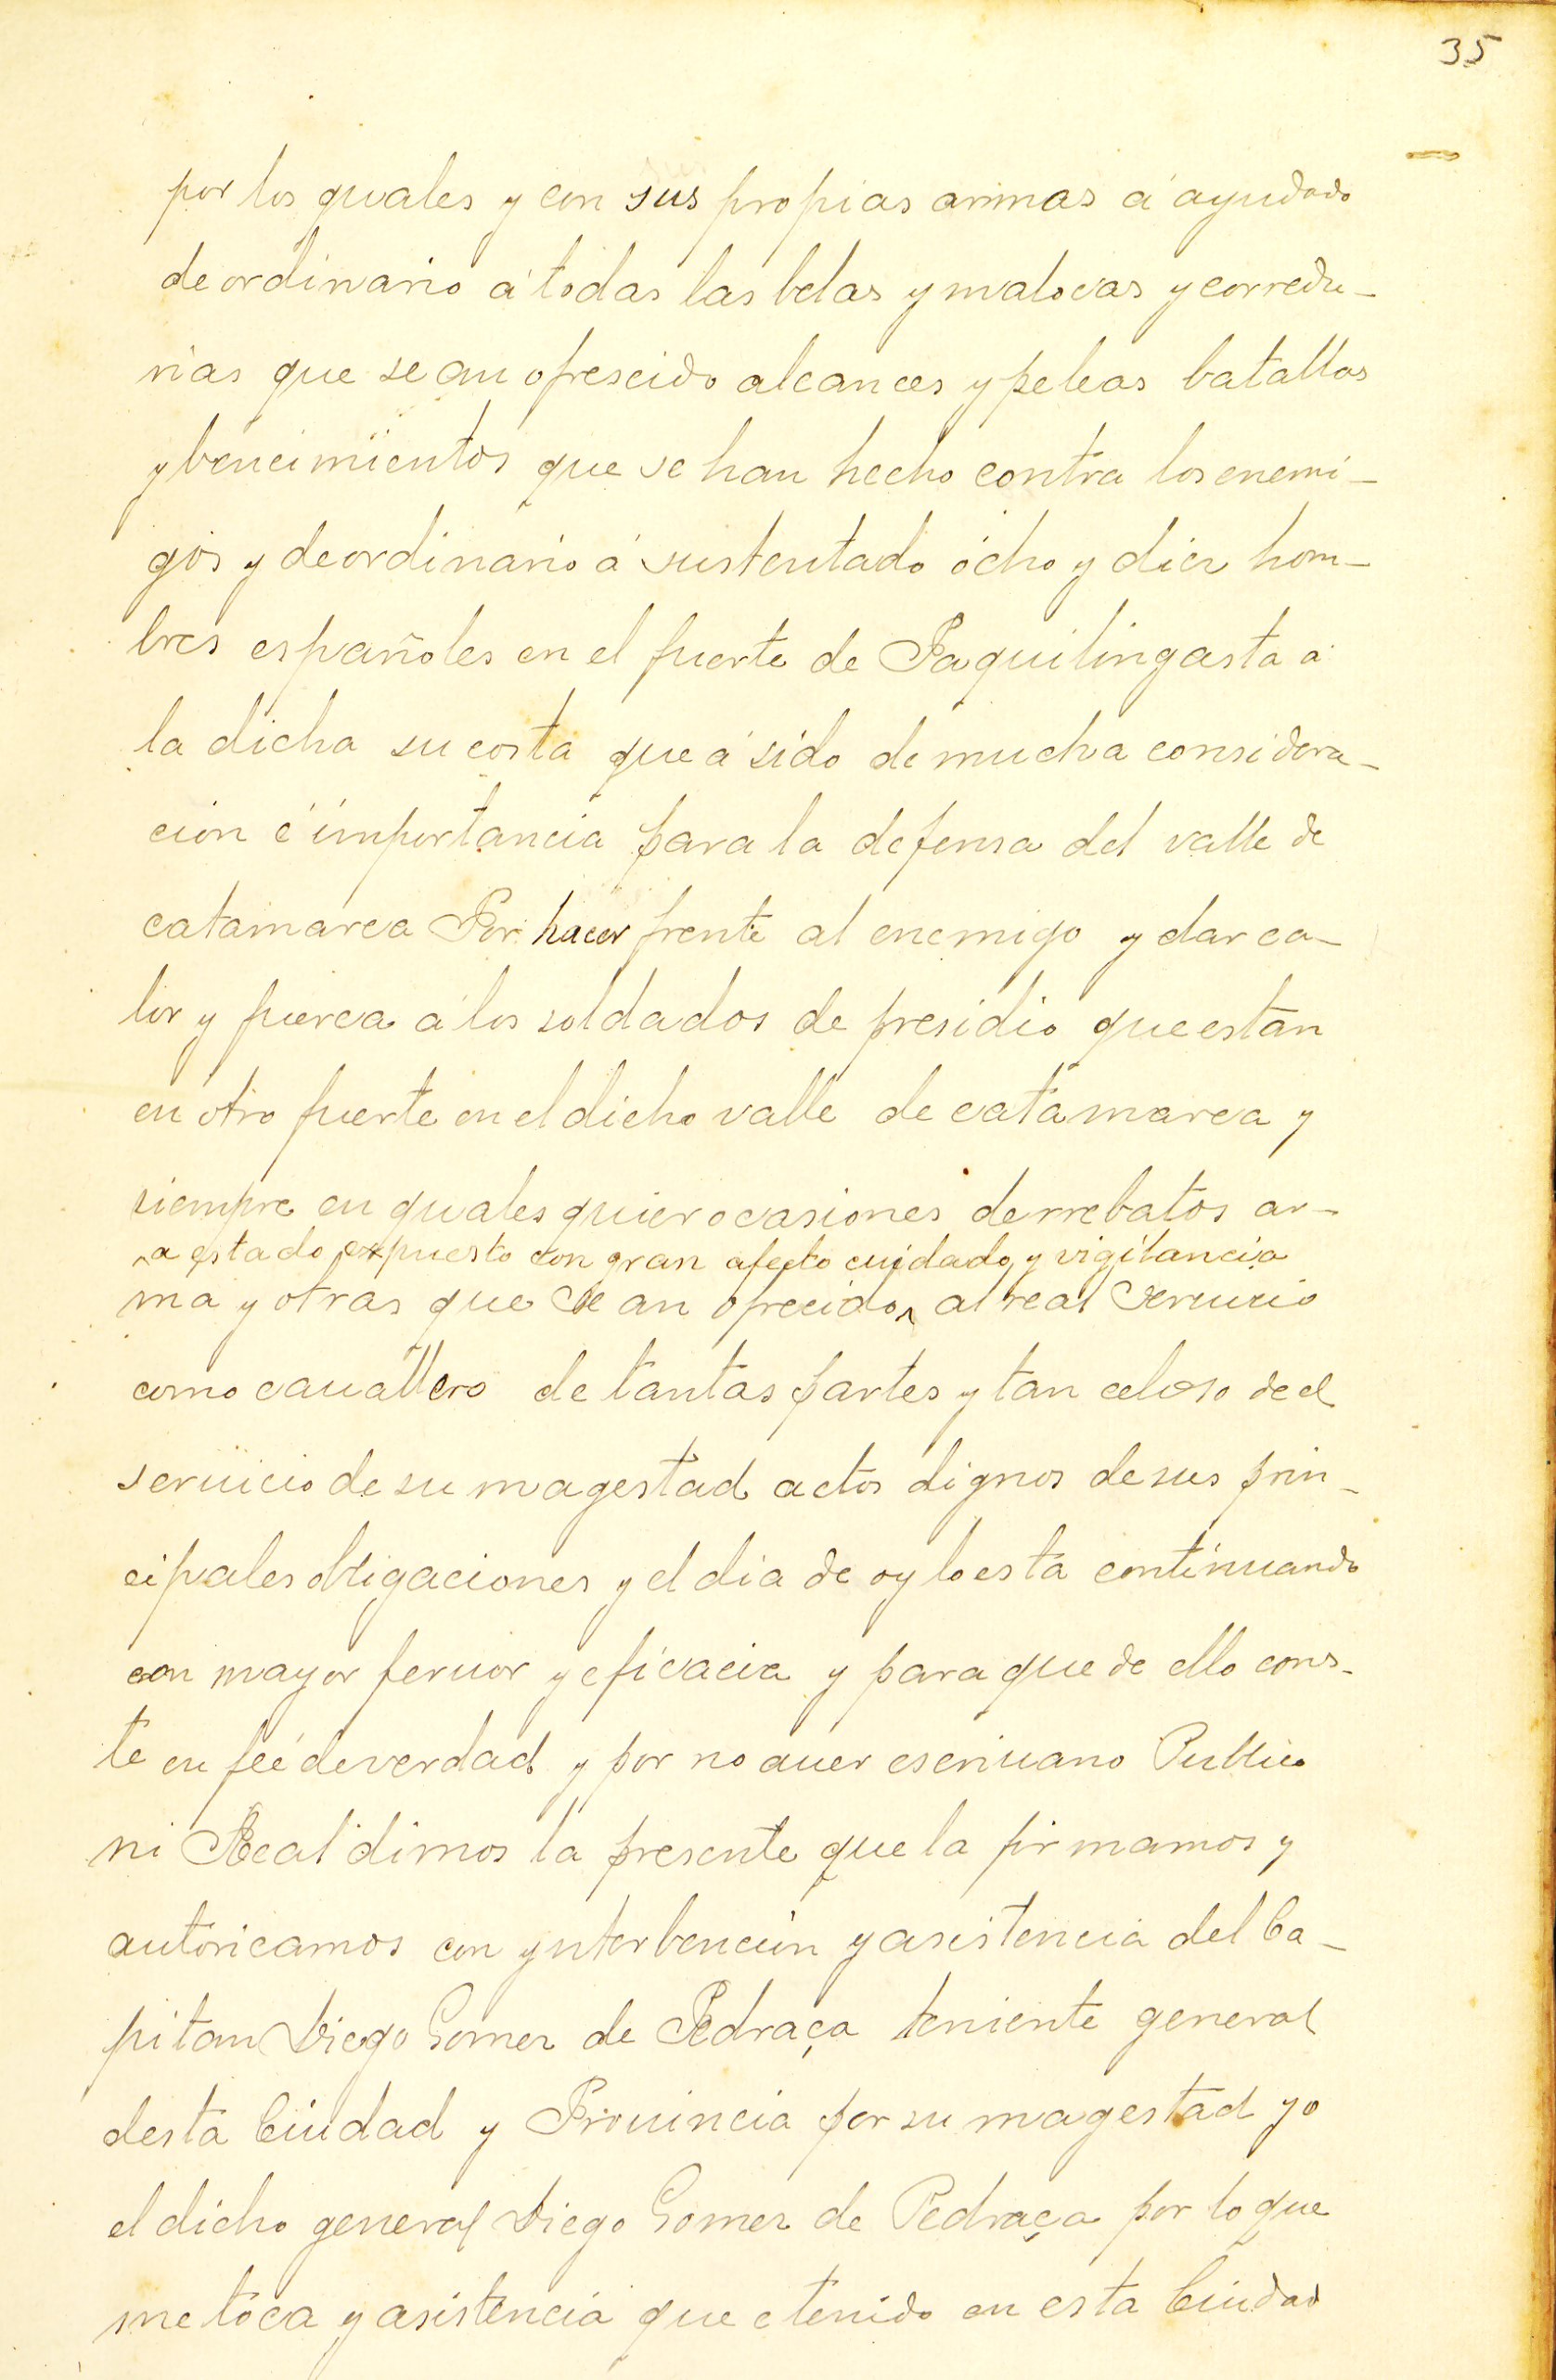 35
por los quales y con sus propias armas á ayudado
de ordinario á todas las belas y malocas y corredu-
rias que se an ofrescido alcances y peleas batallas
y bencimientos que se han hecho contra los enemi-
gos y de ordinario á sustentado ócho y diez hom-
bres españoles en el fuerte de Paquilingasta a
la dicha su costa que á sido de mucha considera-
cion é importancia para la defensa del valle de
catamarca Por hacer frente al enemigo y dar ca-
lor y fuerça á los soldados de presidio que estan
en otro fuerte en el dicho valle de catamarca y
siempre en quales quier ocasiones de rrebatos ar-
a estado expuesto con gran afecto cuidado y vigilancia
ma y otras que se an ofrecido ^ al real servicio
como cauallero de tantas partes y tan celoso de el
seruicio de su magestad actos dignos de sus prin-
cipales obligaciones y el dia de oy lo esta continuando
con mayor feruor y eficacia y para que de ello cons-
te en feé de verdad y por no auer escriuano Publico
ni Real dimos la presente que la firmamos y
autoricamos con ynterbencion y asistencia del Ca-
pitan Diego Gomez de Pedraça teniente general
desta Ciudad y Prouincia por su magestad yo
el dicho general Diego Gomez de Pedraça por lo que
me toca y asistencia que e tenido en esta Ciudad